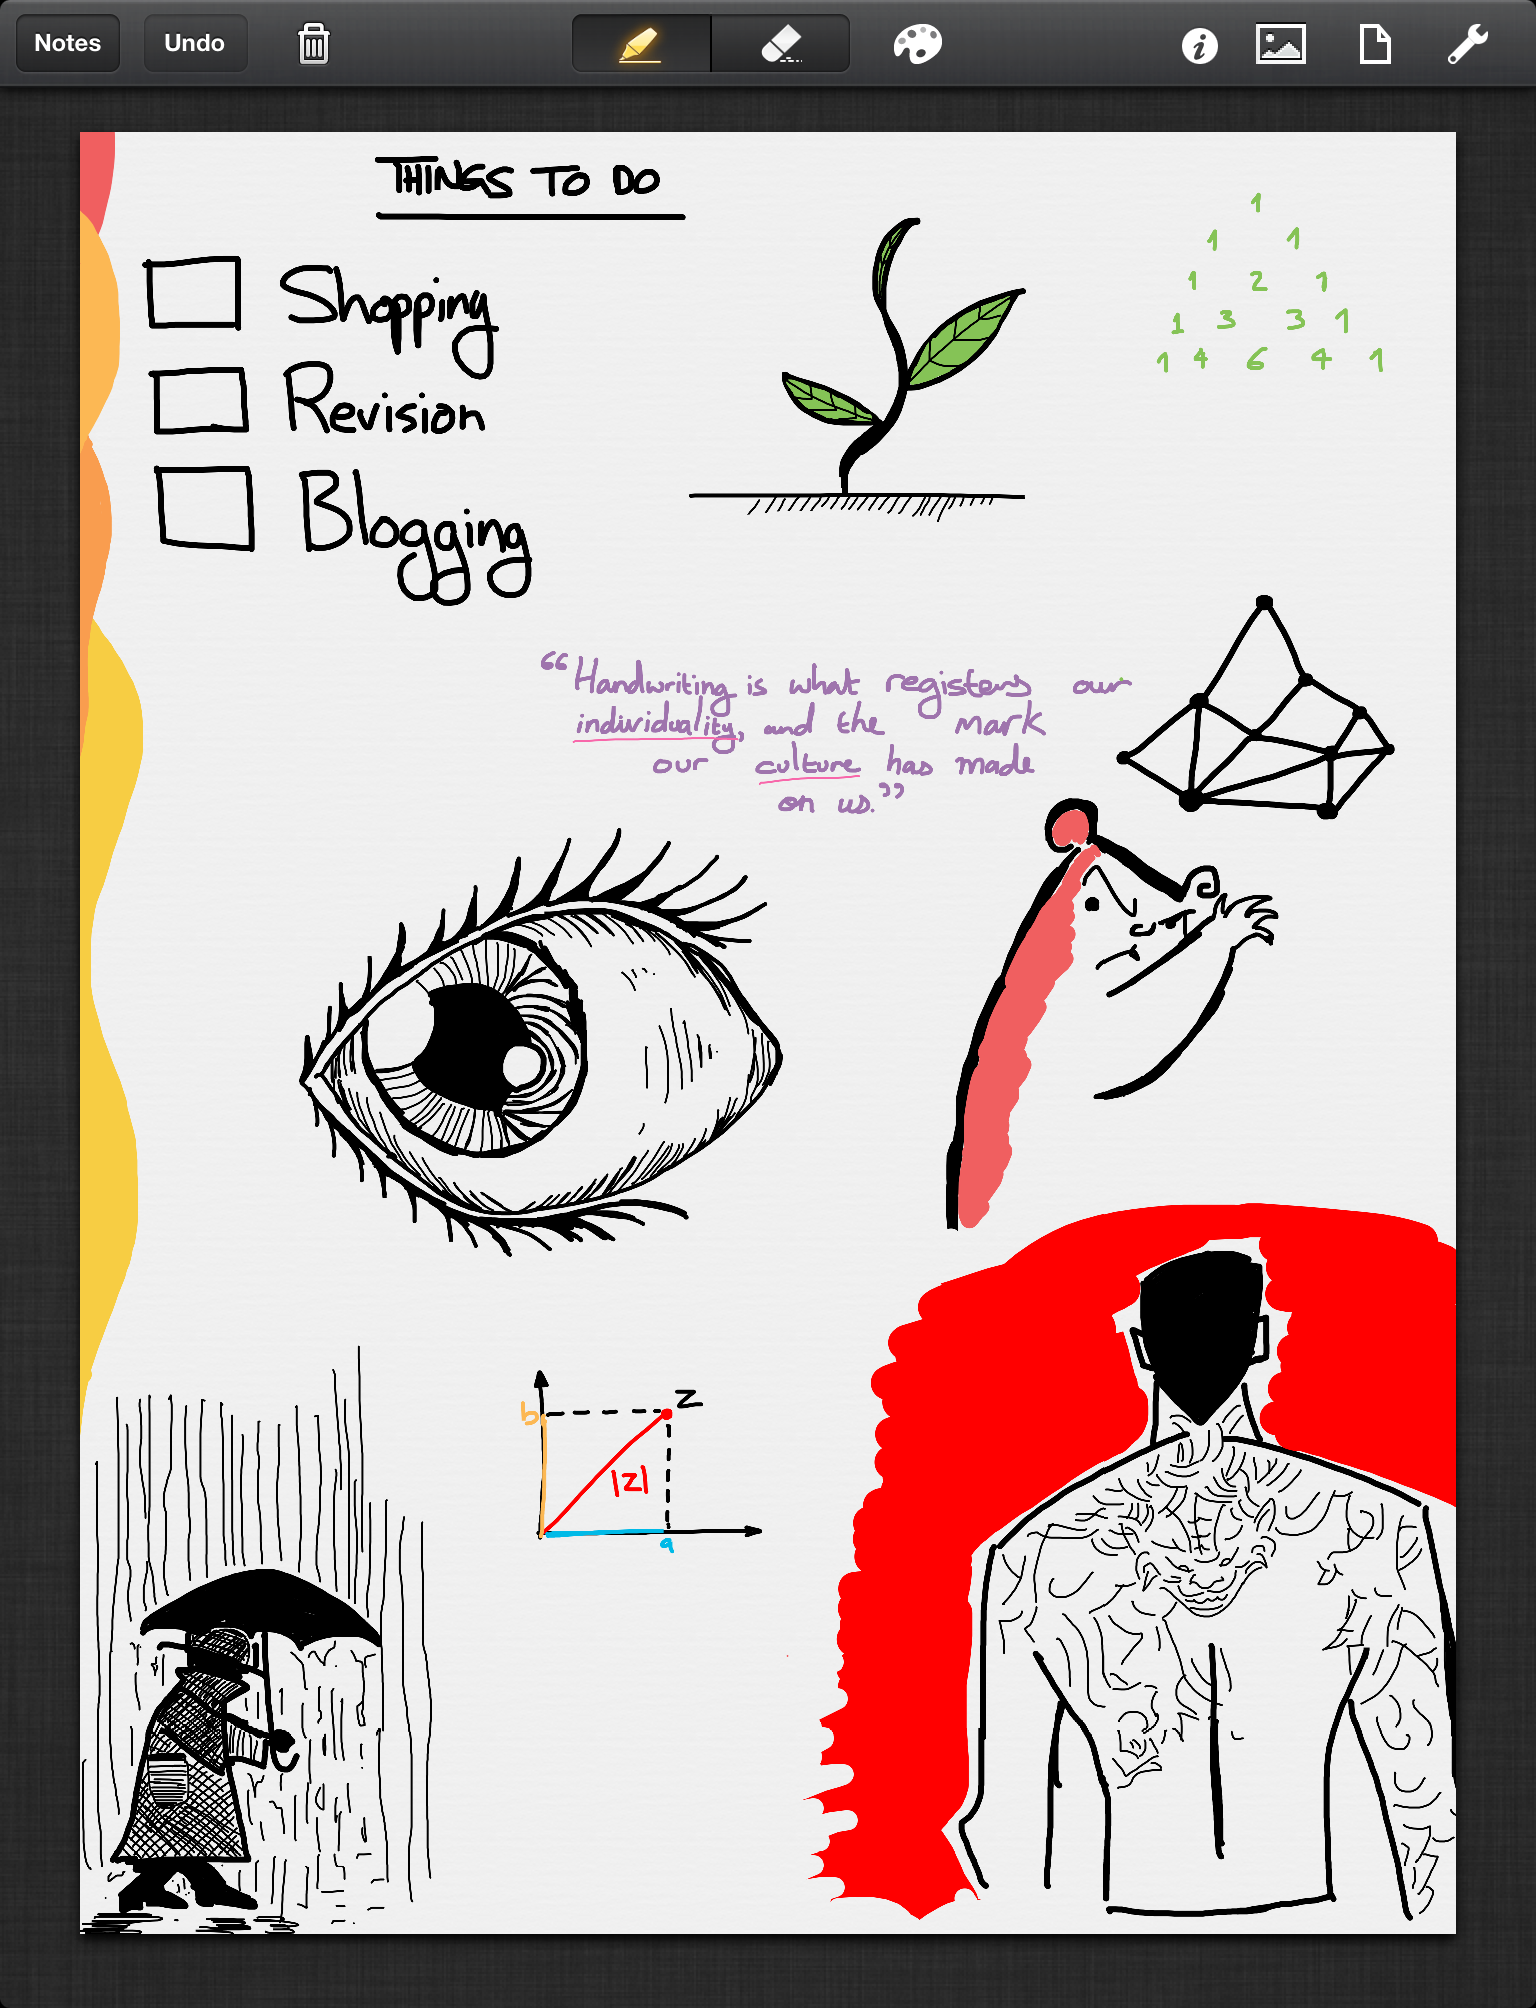 Notes Undo
THINGS TO DO
Shopping
Revision
Blogging
1
1 1
1 2 1
1 3 3 1
1 4 6 4 1
“Handwriting is what registers our
individuality, and the mark
our culture has made
on us.”
b z
|z|
a